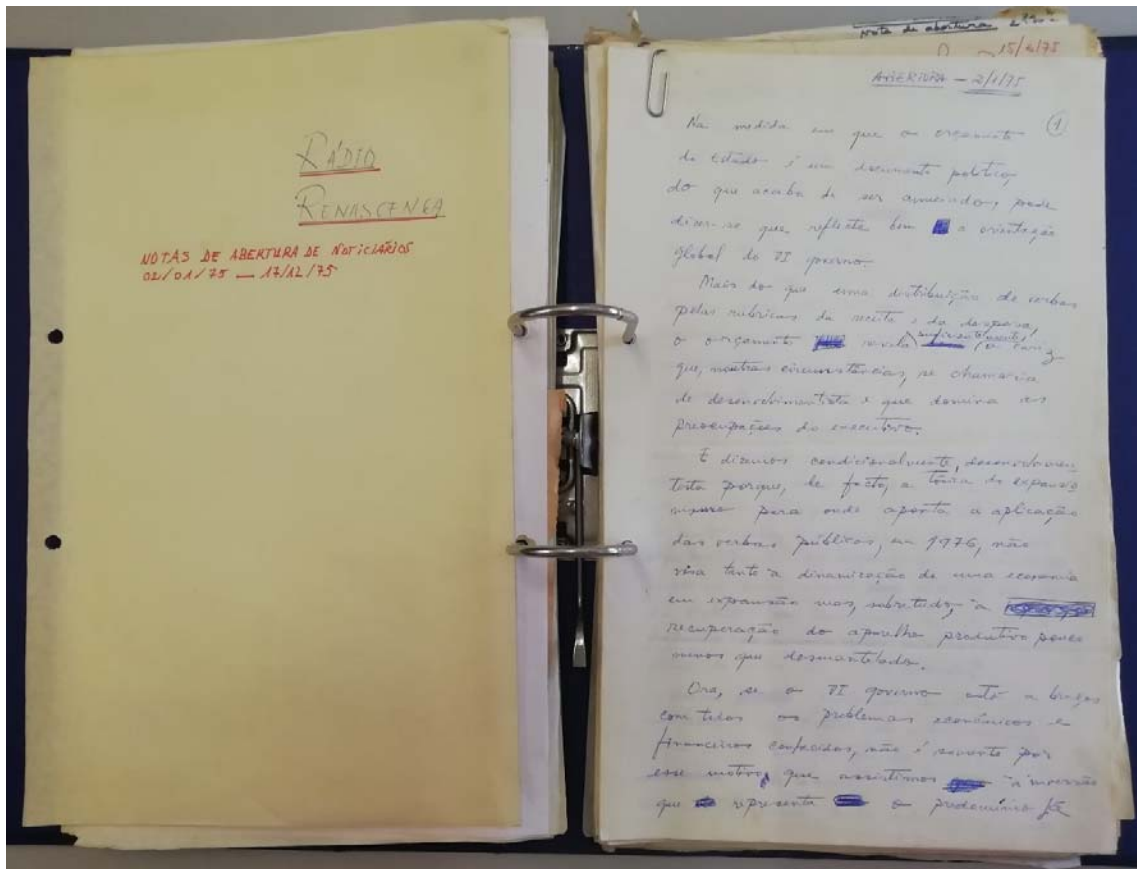 RÁDIO
RENASCENÇA
NOTAS DE ABERTURA DE NOTICIÁRIOS
02/01/75 — 17/12/75
Nota de abertura
15/4/75
ABERTURA — 2/1/75
1
Na medida em que o orçamento
do Estado é um documento político,
do que acaba de ser anunciado, pode
dizer-se que reflecte bem a orientação
global do VI governo.
Mais do que uma distribuição de verbas
pelas rubricas da receita e da despesa,
o orçamento revela, o cariz
que, noutras circunstâncias, se chamaria
de desenvolvimentista e que domina as
preocupações do executivo.
E dizemos condicionalmente, desenvolvimen
tista porque, de facto, a tónica do expansio
nismo para onde aponta a aplicação
das verbas públicas, em 1976, não
visa tanto à dinamização de uma economia
em expansão mas, sobretudo, à
recuperação do aparelho produtivo pouco
menos que desmantelado.
Ora, se o VI governo está a braços
com todos os problemas económicos e
financeiros conhecidos, não é somente por
esse motivo, que assistimos à inversão
que representa o predomínio